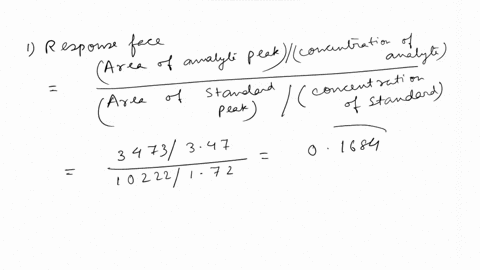 1) Response face
= (Area of analyte peak)/(concentration of analyte)
(Area of standard peak) / (concentration of standard)
= 3473/3.47 = 0.1684
10222/1.72